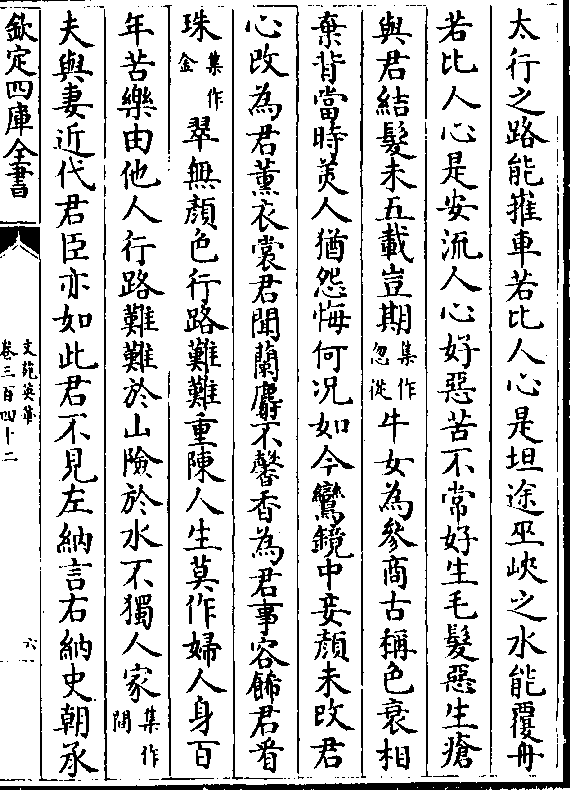 太行之路能摧車若比人心是坦途巫峽之水能覆舟
若比人心是安流人心好惡苦不常好生毛髮惡生瘡
與君結髮未五載豈期集作忽從牛女為參商古稱色衰相
棄背當時美人猶怨悔何況如今鸞鏡中妾顏未改君
心改為君薰衣裳君聞蘭麝不馨香為君事容飾君看
珠集作金翠無顏色行路難難重陳人生莫作婦人身百
年苦樂由他人行路難難於山險於水不獨人家集作間
夫與妻近代君臣亦如此君不見左納言右納史朝承
欽定四庫全書
文苑英華
卷三百四十二
六